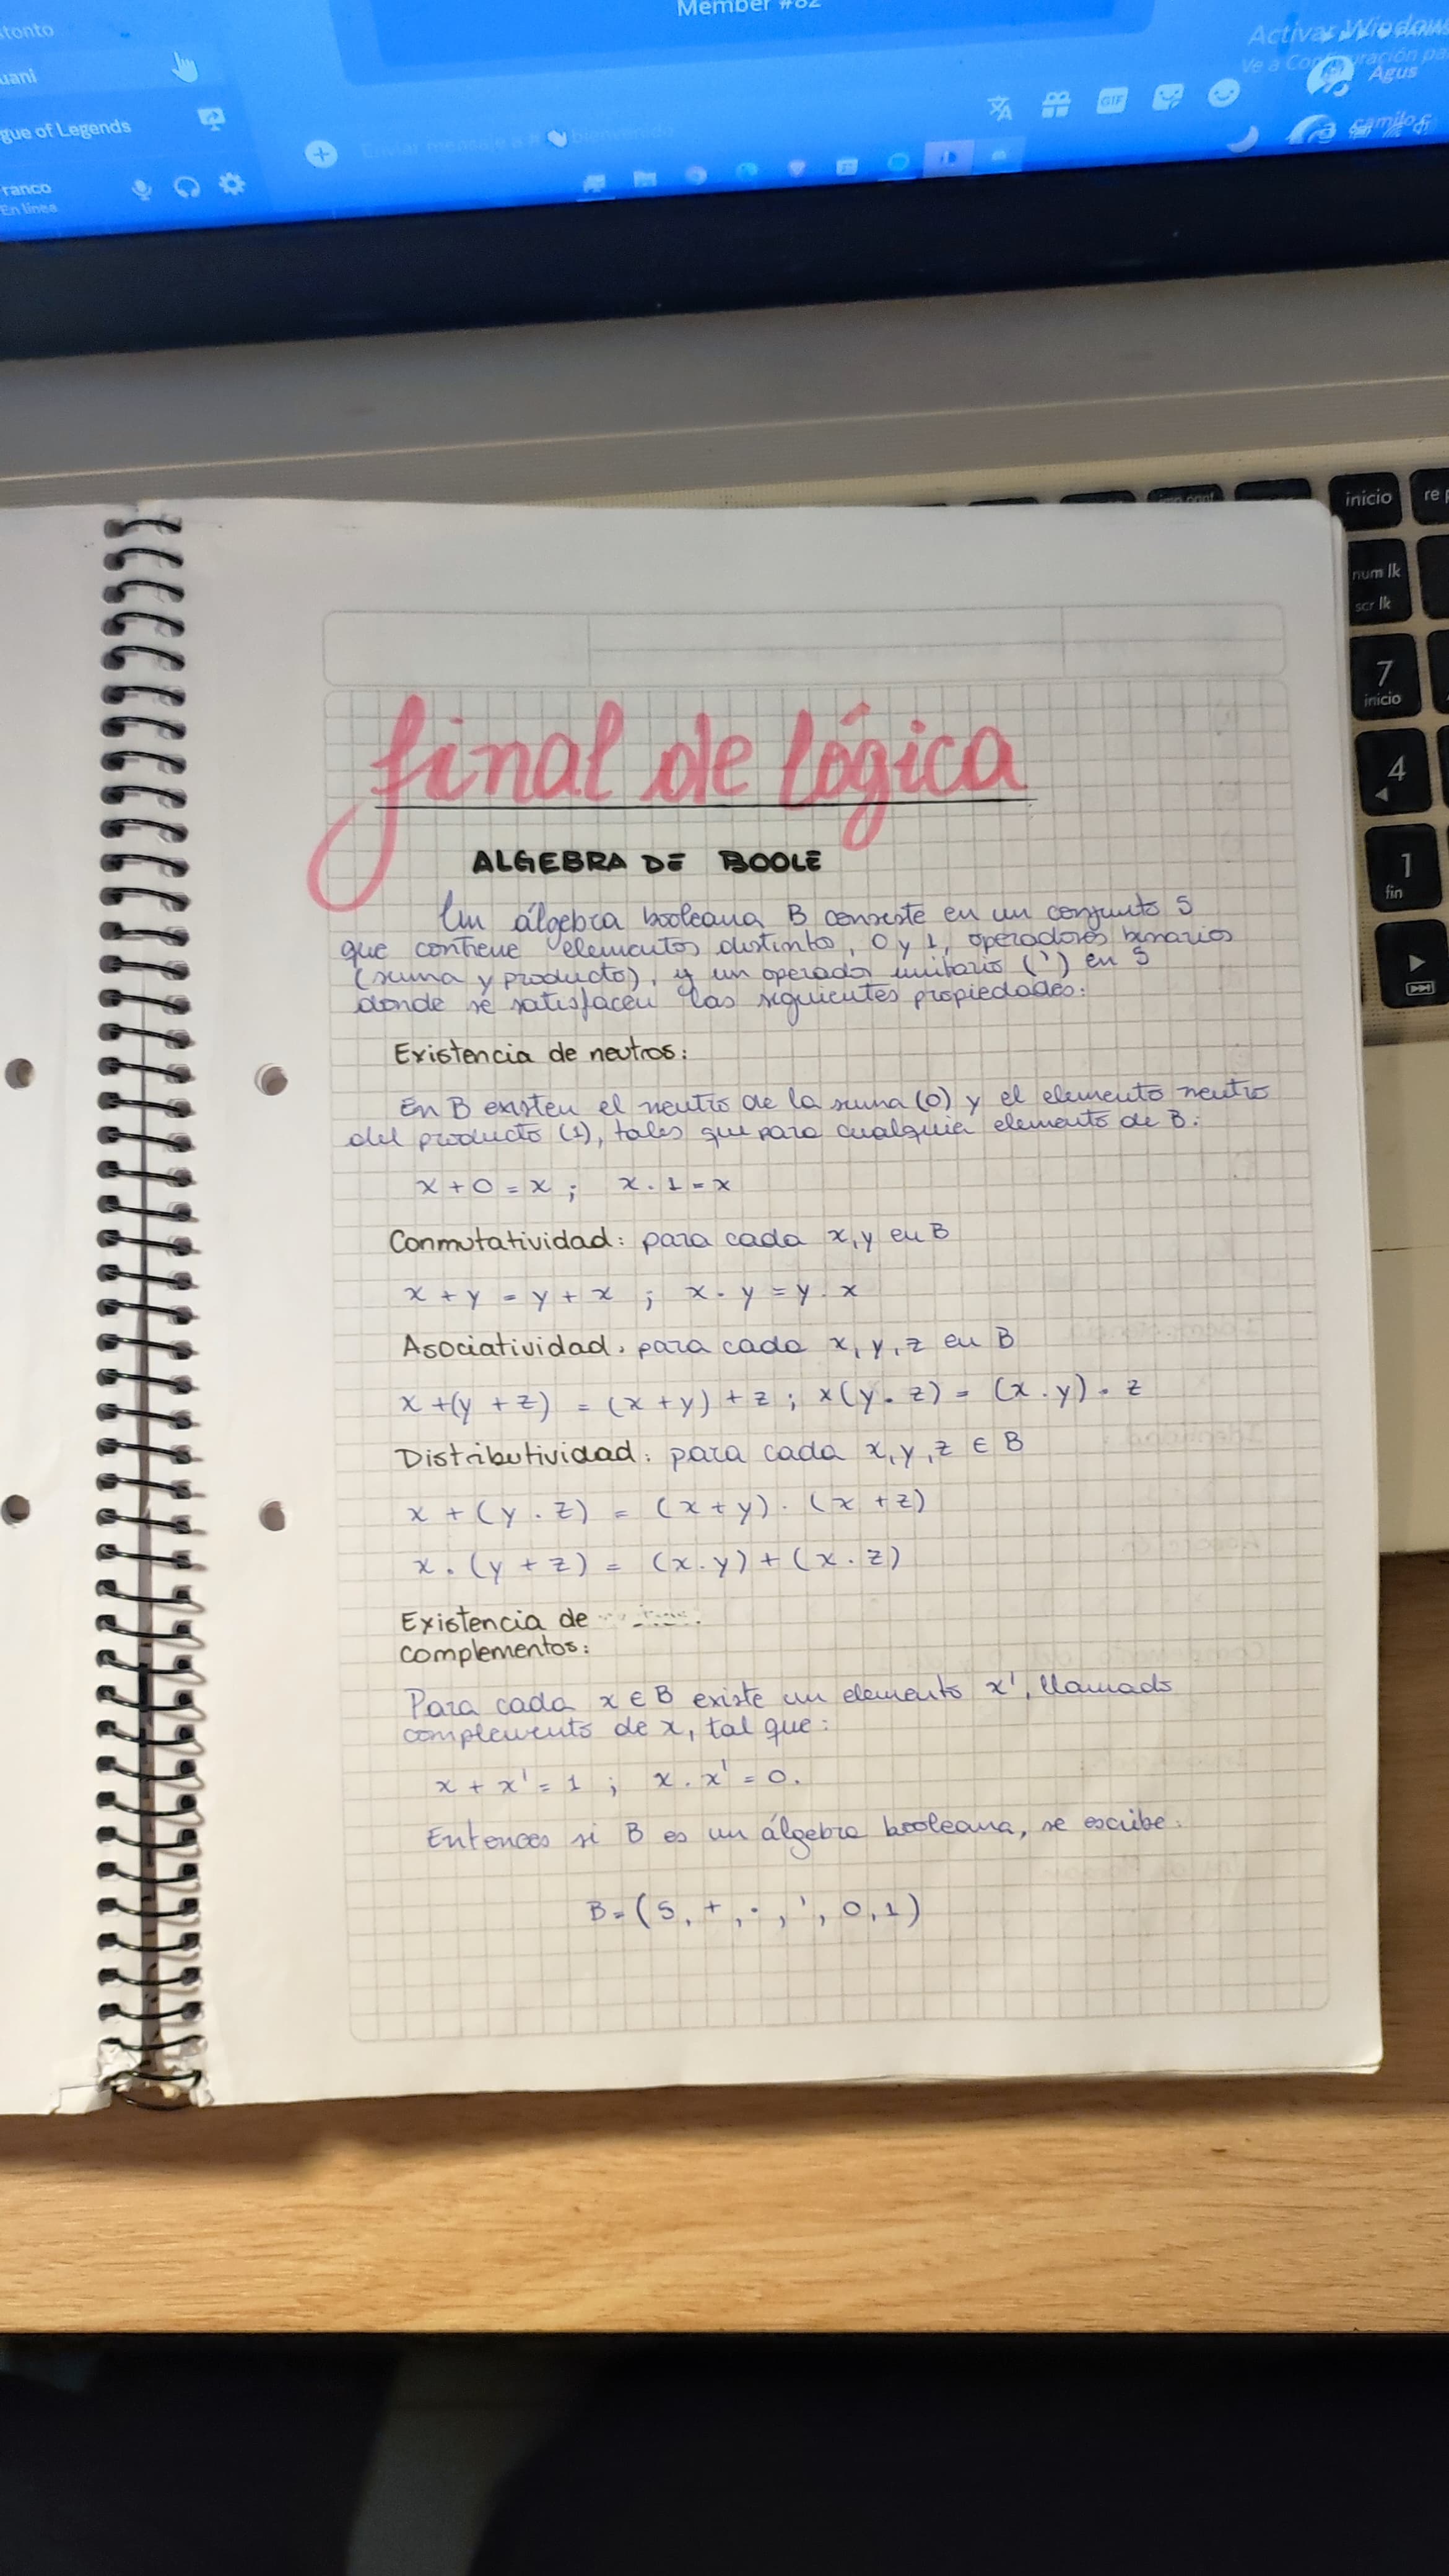 Member #82
stonto
uani
gue of Legends
ranco
En línea
Enviar mensaje a
bienvenido
GIF
Activar Windows
Ve a Configuración pa
Agus
camilo c
inicio
re p
num lk
scr lk
7
inicio
4
1
fin
final de lógica
ALGEBRA DE BOOLE
Un álgebra booleana B consiste en un conjunto S
que contiene elementos distintos, 0 y 1, operadores binarios
(suma y producto), y un operador unitario (') en S
donde se satisfacen las siguientes propiedades:
Existencia de neutros:
En B existen el neutro de la suma (0) y el elemento neutro
del producto (1), tales que para cualquier elemento de B:
x + 0 = x ; x . 1 = x
Conmutatividad: para cada x, y en B
x + y = y + x ; x . y = y . x
Asociatividad: para cada x, y, z en B
x +(y + z) = (x + y) + z ; x(y . z) = (x . y) . z
Distributividad: para cada x, y, z ∈ B
x + (y . z) = (x + y) . (x + z)
x . (y + z) = (x . y) + (x . z)
Existencia de
complementos:
Para cada x ∈ B existe un elemento x', llamado
complemento de x, tal que:
x + x' = 1 ; x . x' = 0.
Entonces si B es un álgebra booleana, se escribe:
B = (S, +, ·, ', 0, 1)